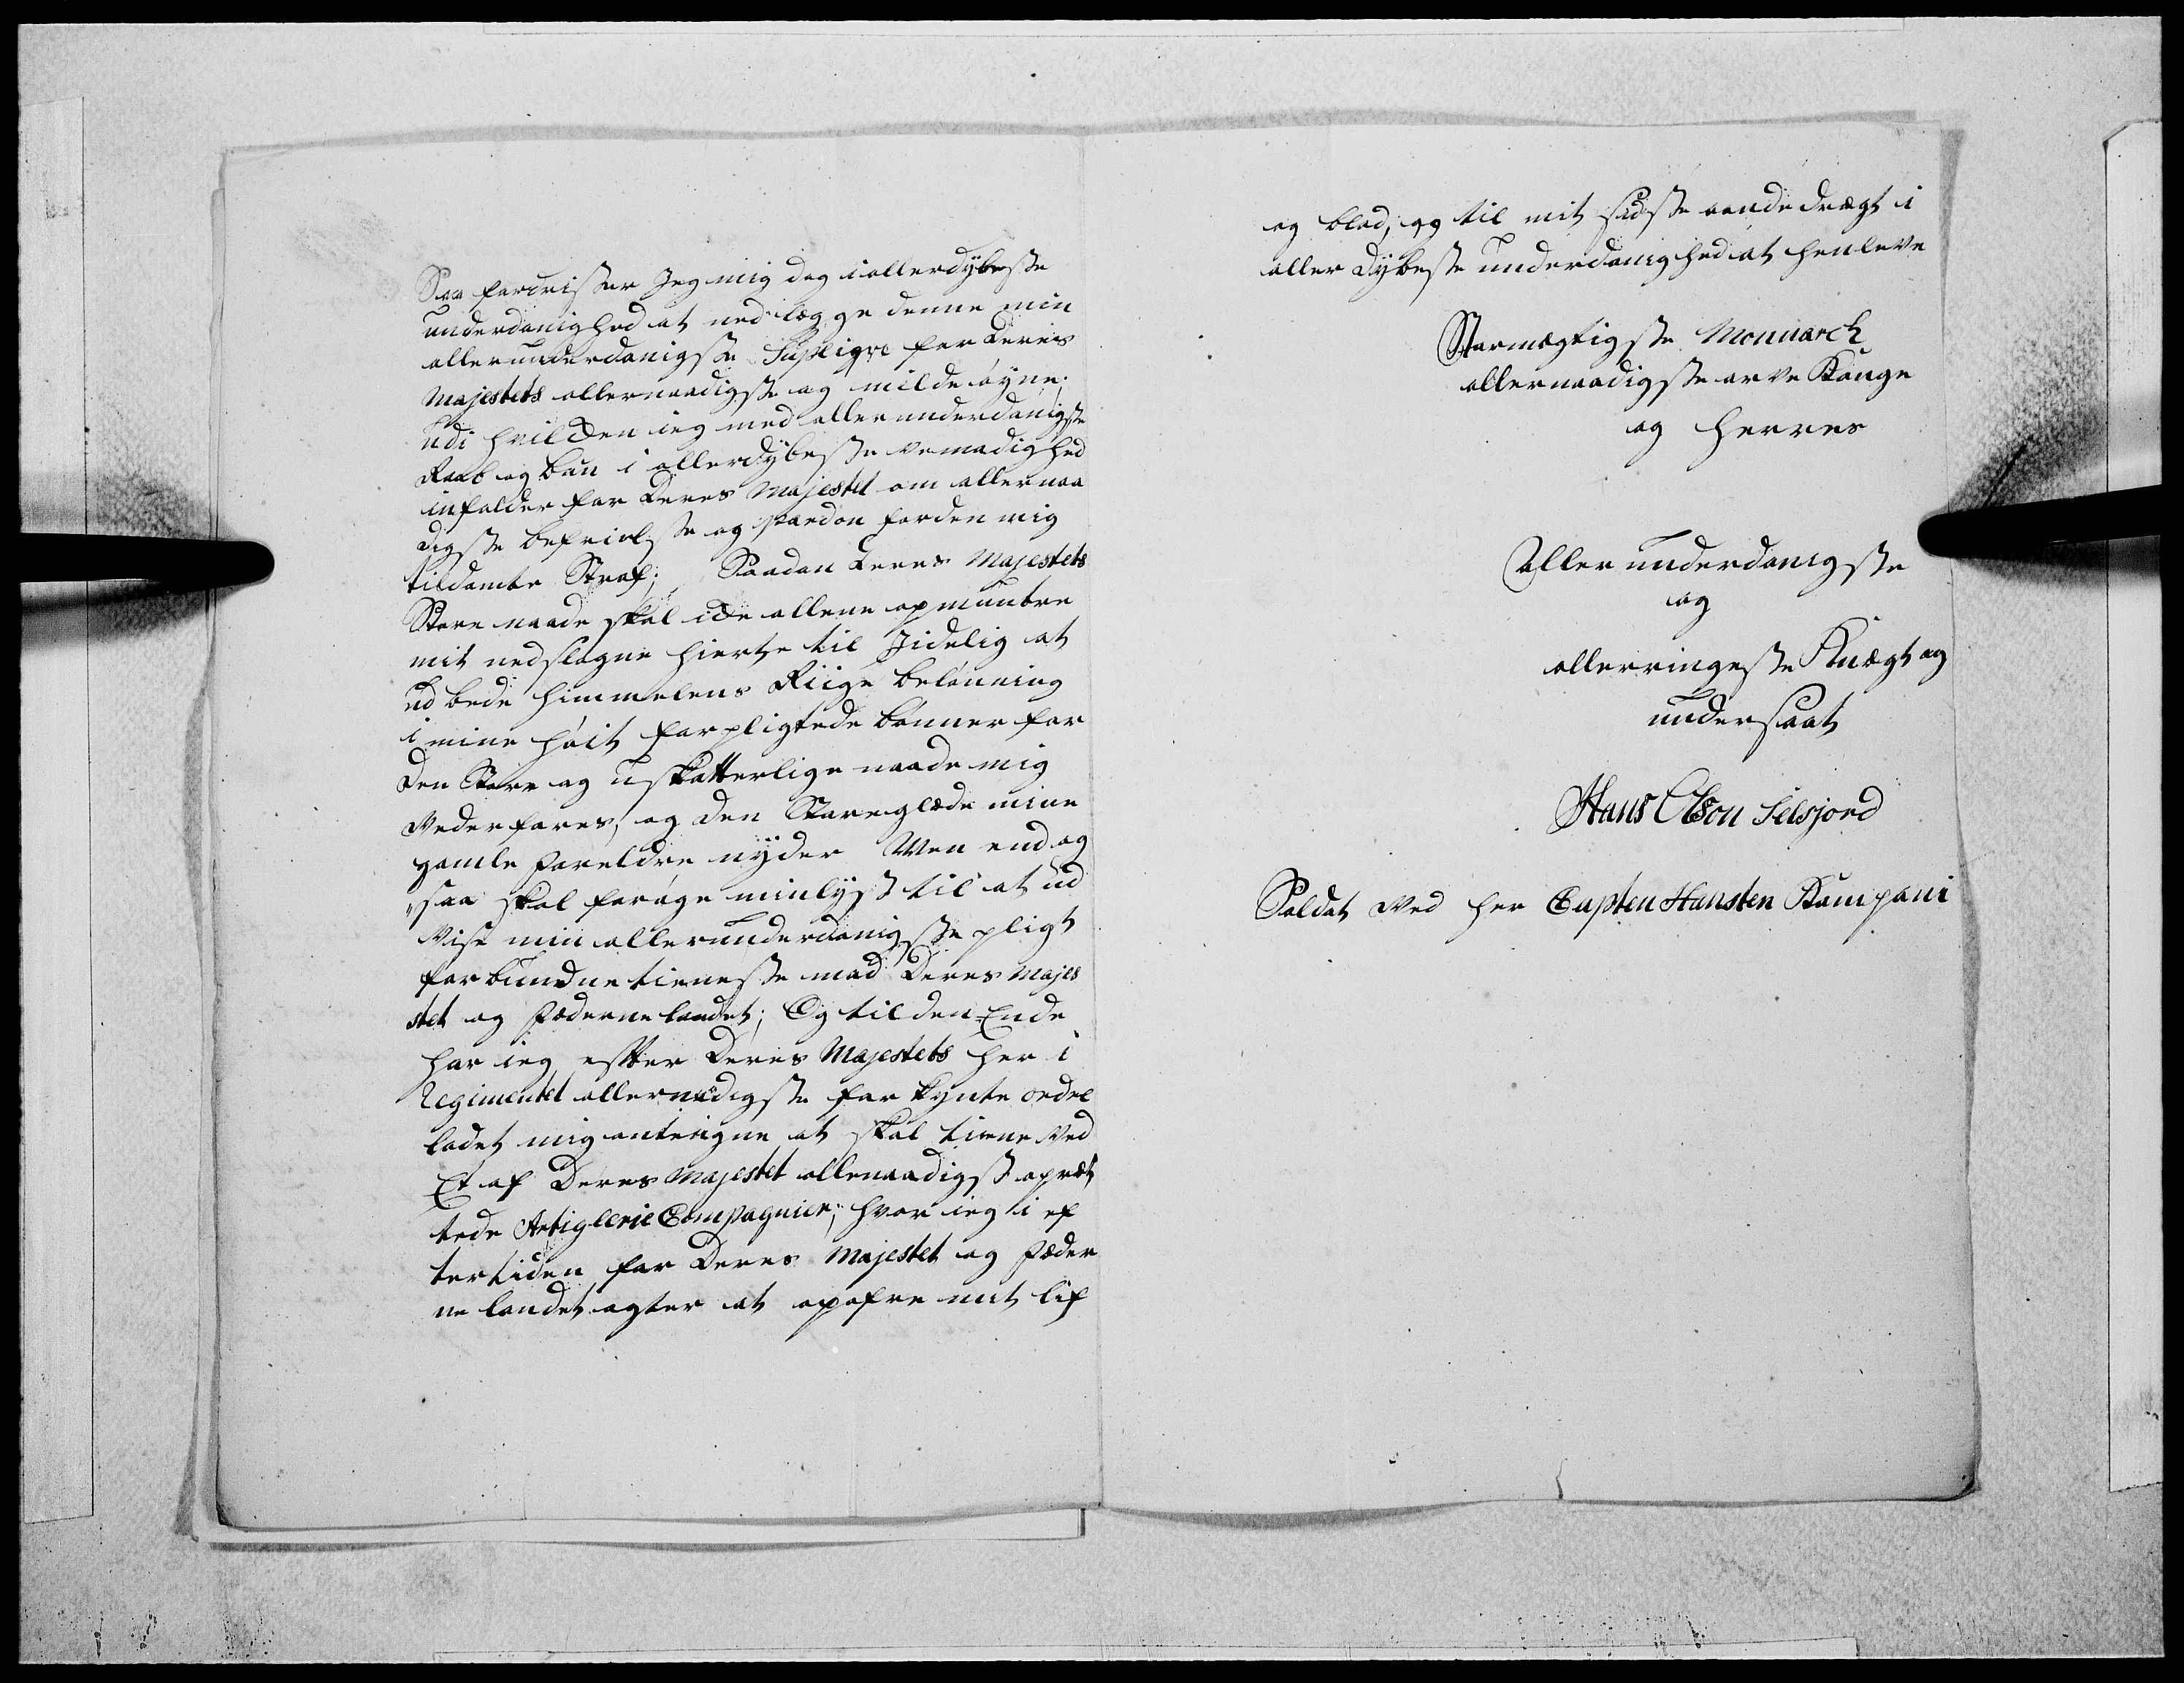 Saa fordrister Jeg mig dog i allerdÿbeste
underdanighed at nedlægge denne min
allerunderdanigste Supliqve for Deris
Majestets allernaadigste og milde öyne;
udi hvilcken ieg med allerunderdanigste
Raab og bön i allerdÿbeste vemodighed
infalder for Deres Majestet om allernaa
digste befrielse og pardon for den mig
tildömte Straf; Saadan Deres Majestets
Store naade skal icke allene opmuntre
mit nedslagne hierte til Jidelig at
udbede himmelens Riige belönning
i mine höit forpligtede bönner for
Den Store og uskatterlige naade mig
vederfares, og den Store glæde mine
gamle foreldre nÿder Men end og
saa skal foröge min lÿst til at ud
vise min allerunderdanigste pligt
forbundne tieneste mod Deres Majes
stet og fæderne landet; Og til den Ende
har ieg efter Deres Majestets her i
Regimentet allernaadigste forkÿnte ordre
ladet mig anteigne at skal tiene ved
Et af Deres Majestet allenaadigst opret
tede Artiglerie Compagnier; hvor ieg i ef
tertiden for Deres Majestet og fæder
ne landet agter at opofre mit lif
og blod, og til mit sidste aandedrægt i
aller dÿbeste underdanighed at henleve
Stormægtigste Monnarch
allernaadigste arve Konge
og Herres
Allerunderdanigste
og
allerringeste Knægt og
undersaat
Hans Olson Selsjord
Soldat ved her Capten Hansten Kompani